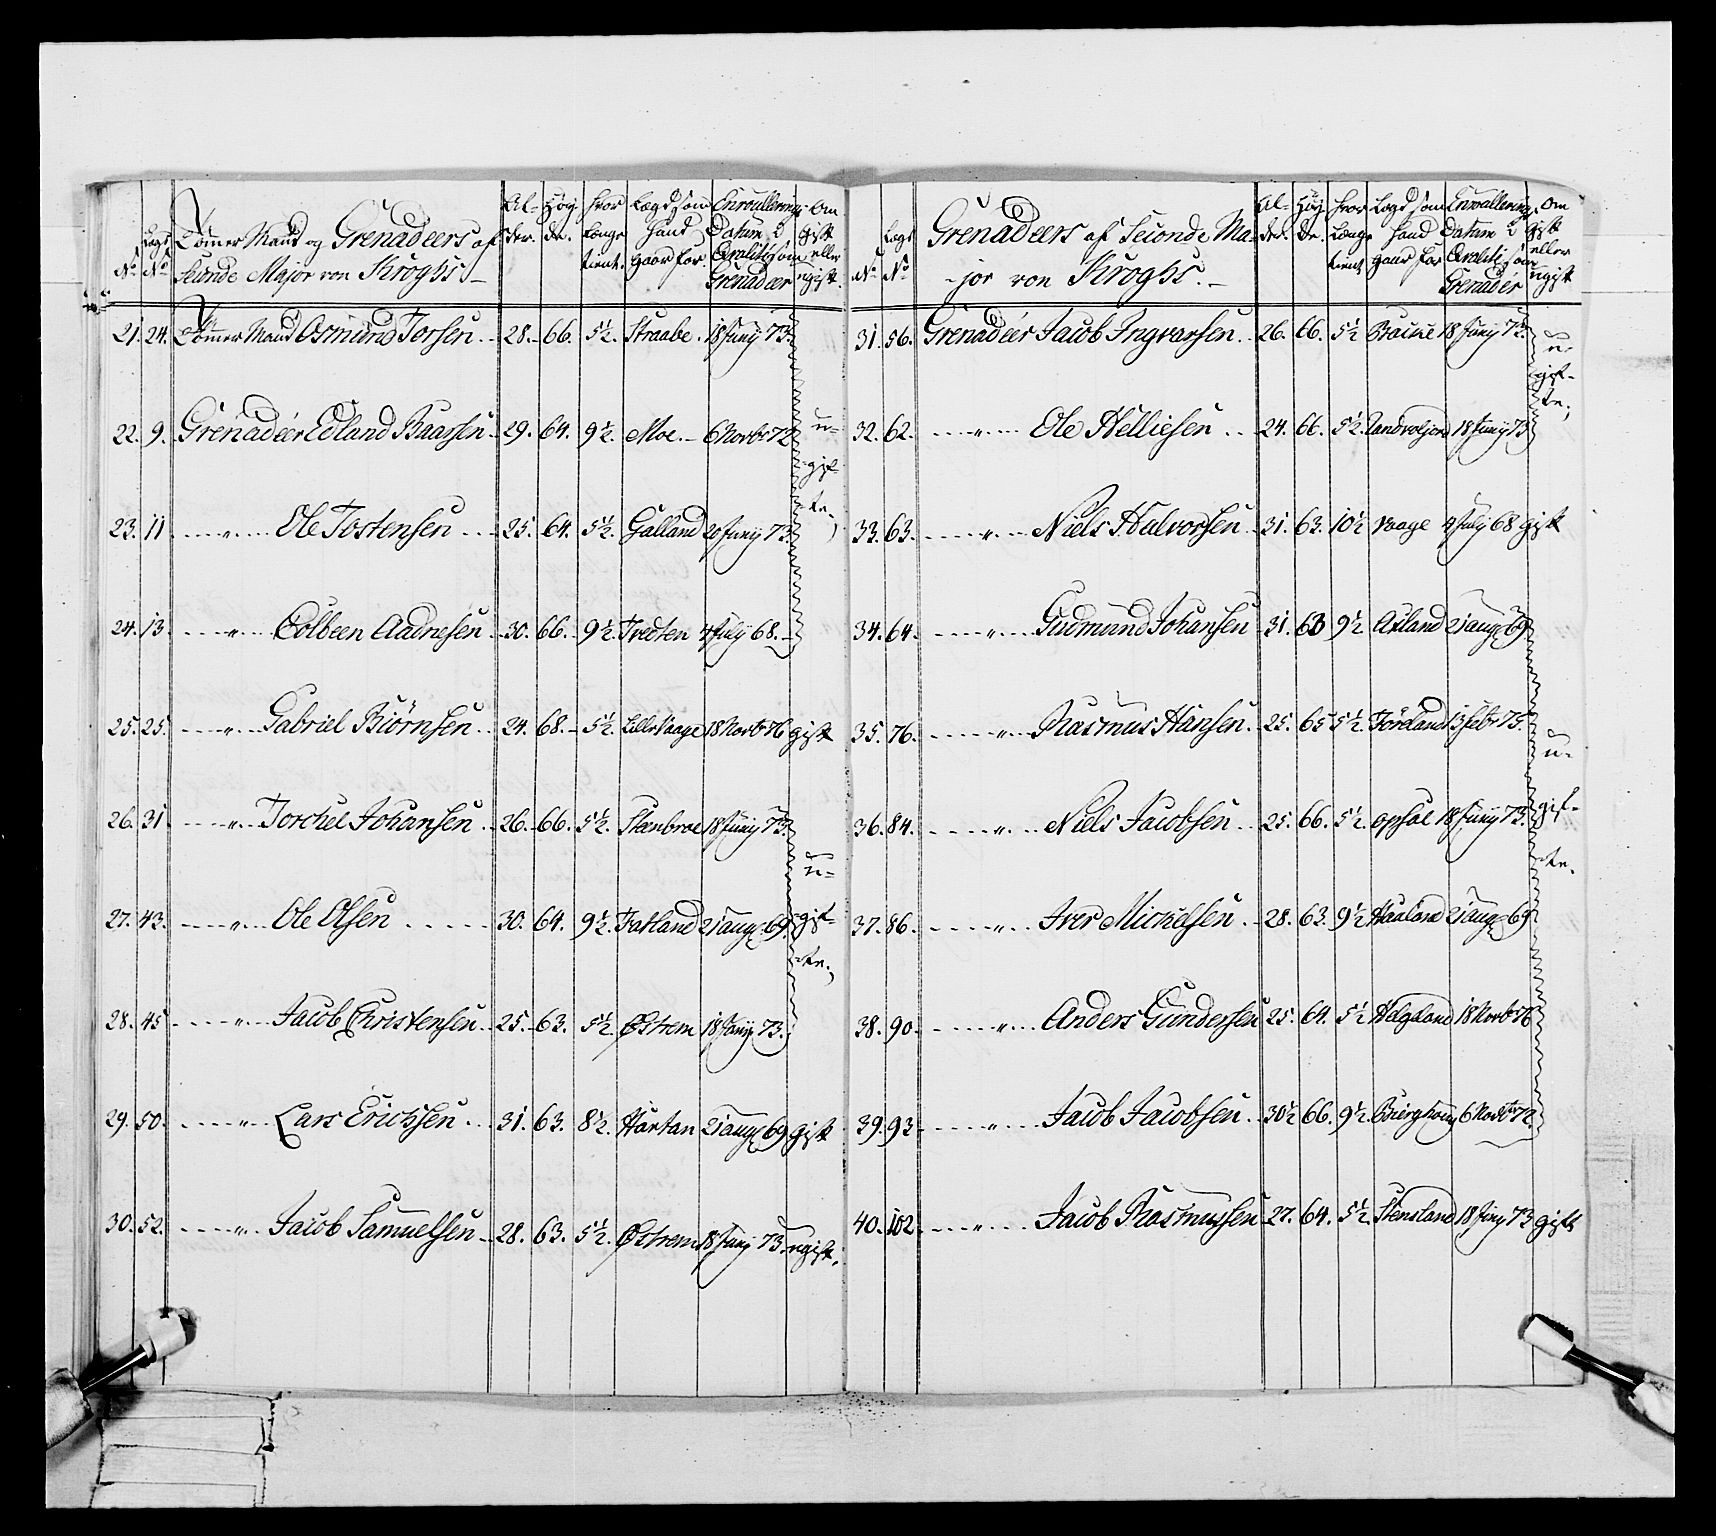 No. Lægds No. Tømer Mand og Grenadeers af Seconde Major von Kroghs Al- der. Høy- de. hvor længe tient. Lægd som hand gaar for Enroullerings Datum i Qvalité som Grenadeer Om gift eller ugift.
21. 24. Tømer Mand Osmund Torsen 28. 66. 5½. Straabe 18 Junÿ 73.
22. 9. Grenadeer Edland Baarsen 29. 64. 9½. Moe 6 Novbr 72
u-
gif-
te;
23. 11 " Ole Tostensen 25. 64. 5½. Galland 20 Junÿ 73.
24. 13. " Colbeen Aadnesen 30. 66. 9½ Tredten 4 Julÿ 68.
25. 25. " Gabriel Biörnsen 24. 68. 5½. Lille Vaage 18 Novbr 76 gift
26. 31 " Torchel Johansen 26. 66. 5½. Steenbroe 18 Junÿ 73.
u-
27. 43. " Ole Olsen 30. 64. 9½. Fatland 21 aug: 69.
gif-
te;
28. 45 " Jacob Christensen 25. 63. 5½. Østrem 18 Junÿ 73.
29. 50. " Lars Erichsen 31. 63. 8½. Hartan 21 aug: 69 gift
30. 52. " Jacob Samuelsen 28. 63. 5½. Østrem 18 Junÿ 73. ugift.
No. Lægds No. Grenadeers af Seconde Ma- jor von Kroghs. Al- der. Høy- de. hvor længe tient Lægd som hand gaar for Enroullerings Datum i Qvalité som Grenadér Om gift eller ugift
31. 56. Grenadeér Jacob Ingvarsen 26. 66. 5½ 18 Junÿ 73.
u-
gif-
te;
32. 62. " Ole Helliesen 24. 66. 5½. 18 Junÿ 73
33. 63. " Niels Halvorsen 31. 63. 10½ Vaage 4 July 68 gift
34. 64. " Gudmund Johansen 31. 63 9½ Axland 21 aug: 69
35. 76. " Rasmus Hansen 25. 65 5½. Föreland 13 Febr 75.
u-
36. 84. " Niels Jacobsen 25. 66. 5½. opsal 18 Junÿ 73.
gif-
te.
37. 86. " Iver Michelsen 28. 63. 9½ Haaland 21 aug: 69
38. 90. " Anders Gundersen 25. 64. 5½ Helgeland 18 Novbr 76
39. 93. " Jacob Jacobsen 30½ 66. 9½. 6 Novbr 72.
40. 102. " Jacob Rasmussen 27. 64. 5½ Stensland 18 Juny 73 gift